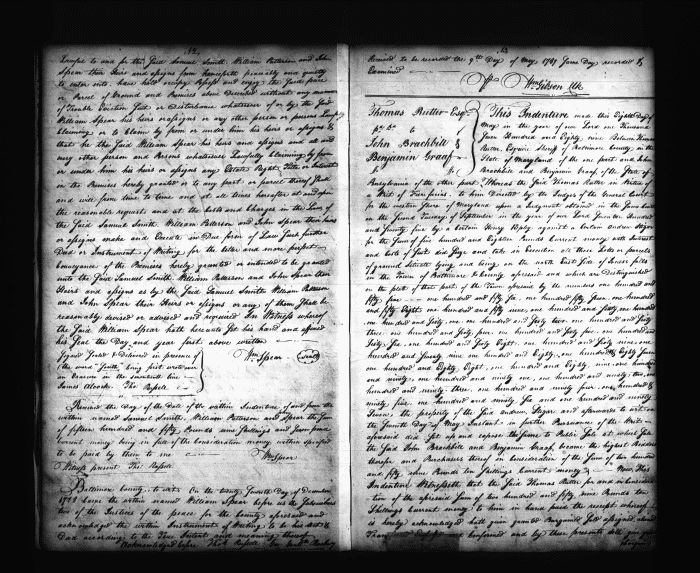 52
Lawful to and for the Said Samuel Smith William Patterson and John
Spear their Heirs and assigns from henceforth peaceably and quietly
to enter into have hold occupy Possess and enjoy the Said piece
or Parcel of Ground and Premises above devised without any manner
of Trouble Eviction Suit or Disturbance whatsoever of or by the Said
William Spear his heirs or assigns or any other person or persons Lawfully
claiming, or to claim by from or under him his heirs or assigns &
that he the Said William Spear his heirs and assigns and all and
every other person and Persons whatsoever Lawfully claiming by from
or under him his heirs or assigns any Estate Right Title or Interest
in the Premises hereby granted or to any part or parcel thereof Shall
and will from time to time and at all times hereafter at and upon
the reasonable request and at the costs and charges in the Law of
the Said Samuel Smith William Patterson and John Spear their heirs
or assigns make and Execute in Due form of Law Such further
Deed or Instrument of Writing for the better and more perfect
conveyance of the Premises hereby granted or intended to be granted
unto the Said Samuel Smith William Patterson and John Spear their
Heirs and assigns as by the Said Samuel Smith William Patterson
and John Spear their Heirs or assigns or any of them Shall be
reasonably devised or advised and required In Witness whereof
the Said William Spear hath hereunto Set his hand and affixed
his Seal the Day and year first above written
Signed Sealed & Delivered in presence of
the word being first
on Erasure in the line
James Alcock Tho Russell
Wm Spear
Seal
Received the Day of the Date of the within Indenture of and from the
within named Samuel Smith, William Patterson and John Spear the Sum
of fifteen hundred and fifty Pounds nine Shillings and four pence
current money being in full of the consideration money within specified
to be paid by them to me
Wm Spear
Witness present Tho Russell
Baltimore county to wit On the twenty fourth Day of December
came the within named William Spear before us the Subscribers
two of the Justices of the peace for the county aforesaid and
acknowledged the within Instrument of Writing to be his Act &
Deed according to the True Intent and meaning thereof
Acknowledged before Thos Russell
53
Received to be recorded the 9th Day of May 1787 Same Day recorded &
Examined
Wm Gibson Clk
Thomas Rutter Esqr
to
John Brackbill &
Benjamin Graaf
This Indenture made this Eighth Day of
May in the year of our Lord one Thousand
Seven Hundred and Eighty nine Between Thomas
Rutter, Esquire Sheriff of Baltimore County in the
State of Maryland of the one part and John
Brackbill and Benjamin Graaf of the State of
Pensylvania of the other part, Whereas the Said Thomas Rutter in Virtue of
a Writ of to him Directed by the Judges of the General Court
for the western Shore of Maryland upon a Judgment obtained in the Same court
on the Second Tuesday of September in the year of our Lord Seventeen Hundred
and Seventy five by a certain Henry against a certain Andrew Stiger
for the Sum of five hundred and Eighteen Pounds Current money with Interest
and costs of Suit did Seize and take in Execution all those Lotts or parcels
of ground Situate lying and being on the north East Side of Jones falls
in the Town of Baltimore & County aforesaid and which are Distinguished
in the platt of that part of the Town aforesaid by the numbers one hundred and
fifty five one hundred and fifty Six, one hundred fifty Seven, one hundred
and fifty Eight, one hundred and fifty nine, one hundred and Sixty, one hundred
and Sixty one, one hundred and Sixty two, one hundred and Sixty
three, one hundred and Sixty four, one hundred and Sixty five, one hundred and
Sixty Six, one hundred and Eight, one hundred and Sixty nine, one
hundred and Seventy nine one hundred and Eighty, one hundred & Eighty Seven
one hundred and Eighty Eight, one hundred and Eighty nine, one hundred
and ninety, one hundred and ninety one, one hundred and ninety two, one
hundred and ninety three, one hundred and ninety four, one hundred &
ninety five, one hundred and ninety Six and one hundred and ninety
Seven, the property of the Said Andrew Stiger and afterwards to wit on
the Seventh Day of May Instant in further Pursuance of the Writ
aforesaid did Set up and expose the Same to Public Sale at which Sale
the Said John Brackbill and Benjamin Graaf, became the highest Bidders
therefor and Purchasers thereof in consideration of the Sum of two hundred
and fifty nine Pounds ten Shillings current money Now This
Indenture Witnesseth that the Said Thomas Rutter for and in consideration
of the aforesaid Sum of two hundred and fifty nine Pounds ten
Shillings Current money to him in hand paid the receipt whereof
is hereby acknowledged hath given granted Bargained Sold assigned
and confirmed and by these presents doth give grant